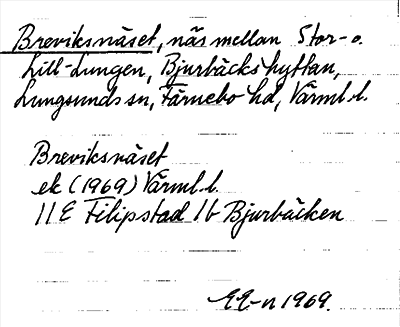 Breviksnäset, näs mellan Stor- o.
Lill-Lungen, Bjurbäckshyttan,
Lungsunds sn, Färnebo hd, Värml. l.
Breviksnäset
ek (1969) Värml. l.
11 E Filipstad 1b Bjurbäcken
EE-n 1969.